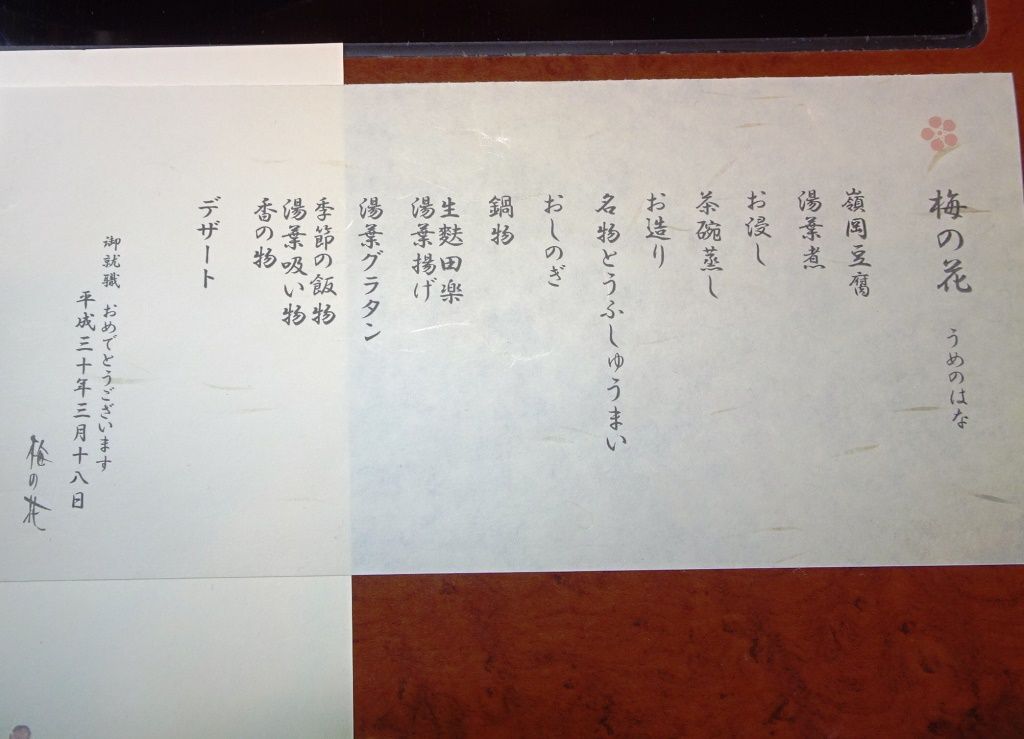 梅の花 うめのはな
嶺岡豆腐
湯葉煮
お浸し
茶碗蒸し
お造り
名物とうふしゅうまい
おしのぎ
鍋物
生麩田楽
湯葉揚げ
湯葉グラタン
季節の飯物
湯葉吸い物
香の物
デザート
御就職 おめでとうございます
平成三十年三月十八日
梅の花